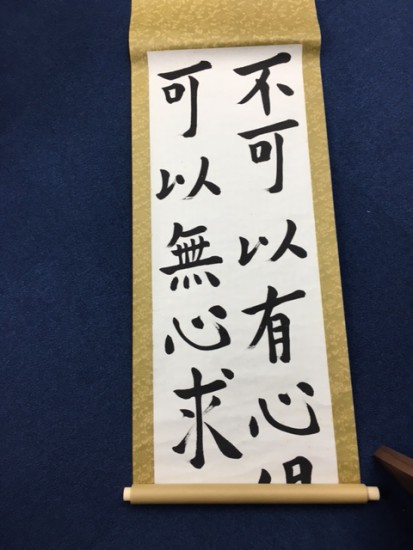 不可以有心得
可以無心求